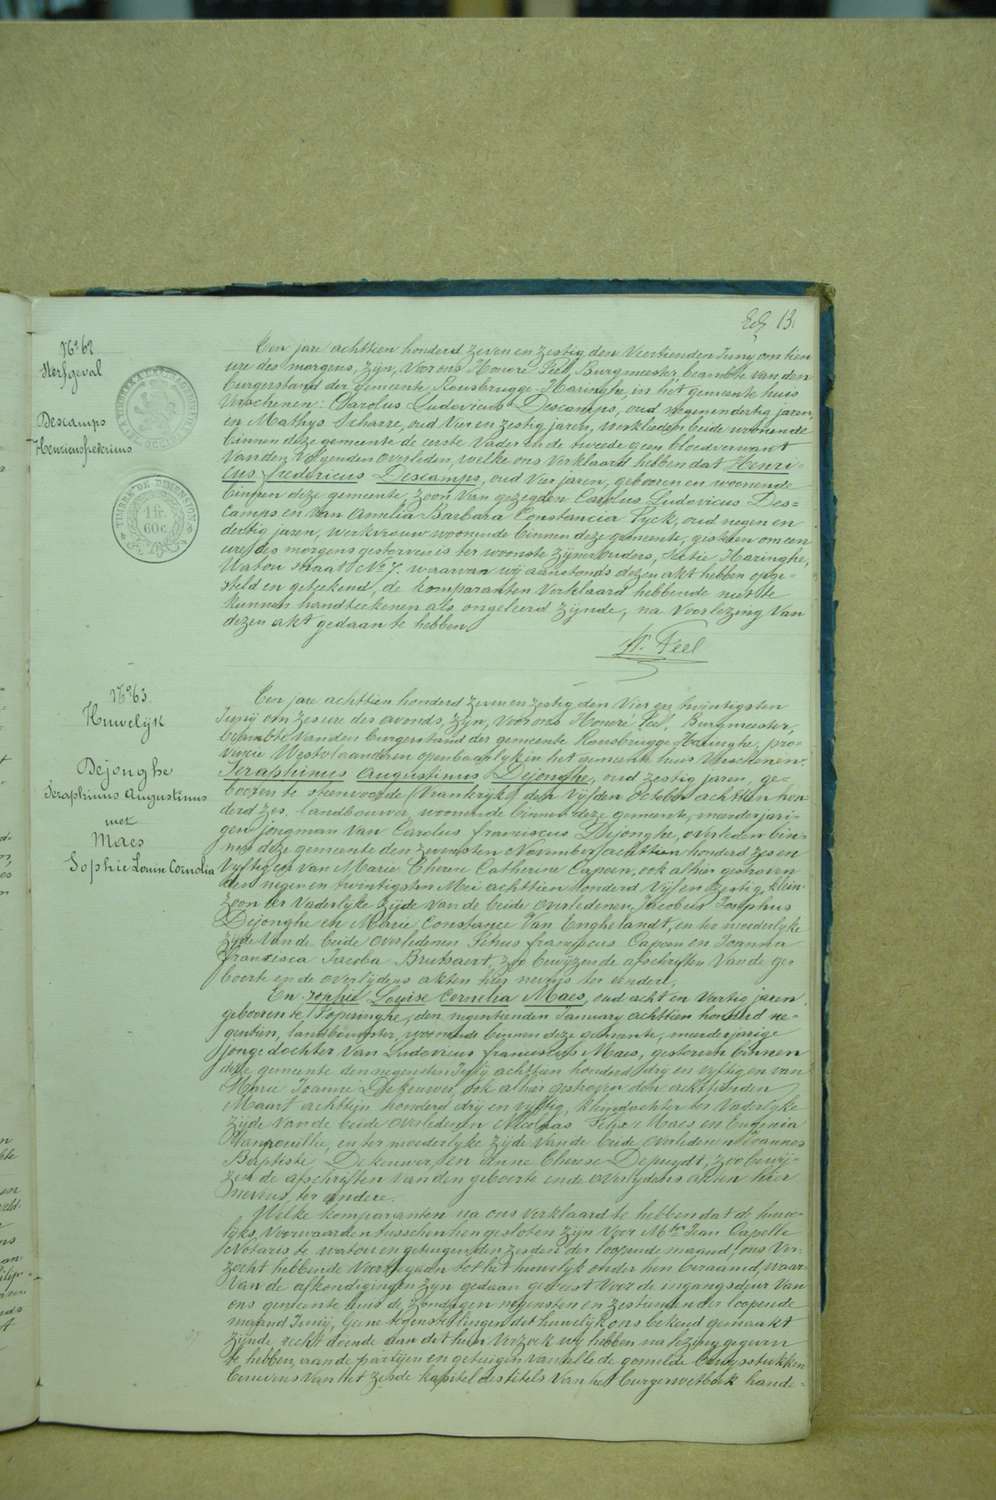 13.
N° 62
Sterfgeval
Descamps
Henricus fredericus
TIMBRE DE DIMENSION
1 fr.
60 c.
Ten jare achttien honderd zeven en zestig, den Veertienden Juny om tien
ure des morgens, zyn, Voor ons Honoré Feel, Burgmeester beambte van den
burgerstand der gemeente Rousbrugge-Haringhe, in het gemeente huis
Verschenen: Carolus Ludovicus Descamps, oud negenendertig jaren,
en Mathys Scharre, oud Vier en zestig jaren, werklieden beide woonende
binnen deze gemeente de eerste Vader en de tweede geen bloedverwant
Van den Volgenden overleden, welke ons Verklaard hebben dat Henri-
cus fredericus Descamps, oud Vier jaren, gebooren en woonende
binnen deze gemeente, zoon Van gezegden Carolus Ludovicus Des-
camps en van Amelia Barbara Constancia Pyck, oud negen en
dertig jaren, werkvrouw woonende binnen deze gemeente, gisteren om een
ure des morgens gestorven is ter woonste zyner ouders, Sectie Haringhe,
Watou straat N° 7. waarvan wy aanstonds dezen akt hebben opge-
steld en geteekend, de komparanten Verklaard hebbende niet te
kunnen handteekenen als ongeleerd zynde, na Voorlezing Van
dezen akt gedaan te hebben.
H. Feel
N° 63
Huwelyk
Dejonghe
Seraphinus Augustinus
met
Maes
Sophie Louise Cornelia
Ten jare achttien honderd zeven en zestig den Vier en twintigsten
Junij om zes ure des avonds, zyn, Voor ons Honoré Feel, Burgmeester,
beambte Van den burgerstand der gemeente Rousbrugge-Haringhe, pro-
vincie Westvlaanderen openbaarlyk in het gemeente huis Verschenen:
Seraphinus Augustinus Dejonghe, oud zestig jaren, ge-
booren te Steenvoorde (Vrankryk) den Vyfden October achttien hon-
derd zes, landbouwer, woonende binnen deze gemeente, meerderjari-
gen jongman Van Carolus franciscus Dejonghe, overleden bin-
nen deze gemeente den zevensten November achttien honderd zes en
Vyftig en van Marie Therese Catherine Capoen, ook alhier gestorven
den negen en twintigsten Mei achttien honderd Vyf en zestig, klein-
zoon ter Vaderlyke zyde Van de beide overledenen Jacobus Josephus
Dejonghe en Marie Constance Van Enghelandt, en ter moederlyke
zyde Van de beide overledenen Petrus franciscus Capoen en Joanna
Francisca Jacoba Brutsaert, zoo bewyzen de afschriften Van de ge-
boorte en de overlydens akten hier nevens ter eendere,
En Sophie Louise Cornelia Maes, oud acht en Veertig jaren
gebooren te Poperinghe, den negentienden January achttien honderd ne-
gentien, landbouwster, woonende binnen deze gemeente, meerderjarige
jonge dochter Van Ludovicus franciscus Maes, gestorven binnen
deze gemeente den negensten Junij achttien honderd dry en vyftig en van
Marie Joanne Dekeuwer, ook alhier gestorven den achtsienden
Maart achttien honderd drij en vyftig, kleindochter ter Vaderlyke
zyde Van de beide overledenen Nicolaas Felix Maes en Eugenia
en ter moederlyke zyde Van de beide overleden Joannes
Baptiste Dekeuwer en Anne Therese Depuydt, zoo bewij-
zen de afschriften van den geboorte en de overlydens akten hier
nevens ter andere.
Welke komparanten na ons verklaard te hebben dat de huwe-
lyks Voorwaarden tusschen hen gesloten zyn Voor Mter Jean Capelle
Notaris te Watou en getuigen den zesden der loopende maand, ons Ver-
zocht hebbende Voortegaan tot het huwelyk onder hen beraamd, waar-
Van de afkondigingen zyn gedaan geweest Voor de ingangsdeur Van
ons gemeente huis de zondagen negensten en zestienden der loopende
maand Junij, Geene tegenstellingen dit huwelyk ons bekend gemaakt
zynde, recht doende aan dit hun Verzoek wy hebben na lezing gegeven
te hebben, aan de partijen en getuigen van alle de gemelde bewysstukken
benevens Van het zesde kapitel des titels Van het burgerwetboek hande-